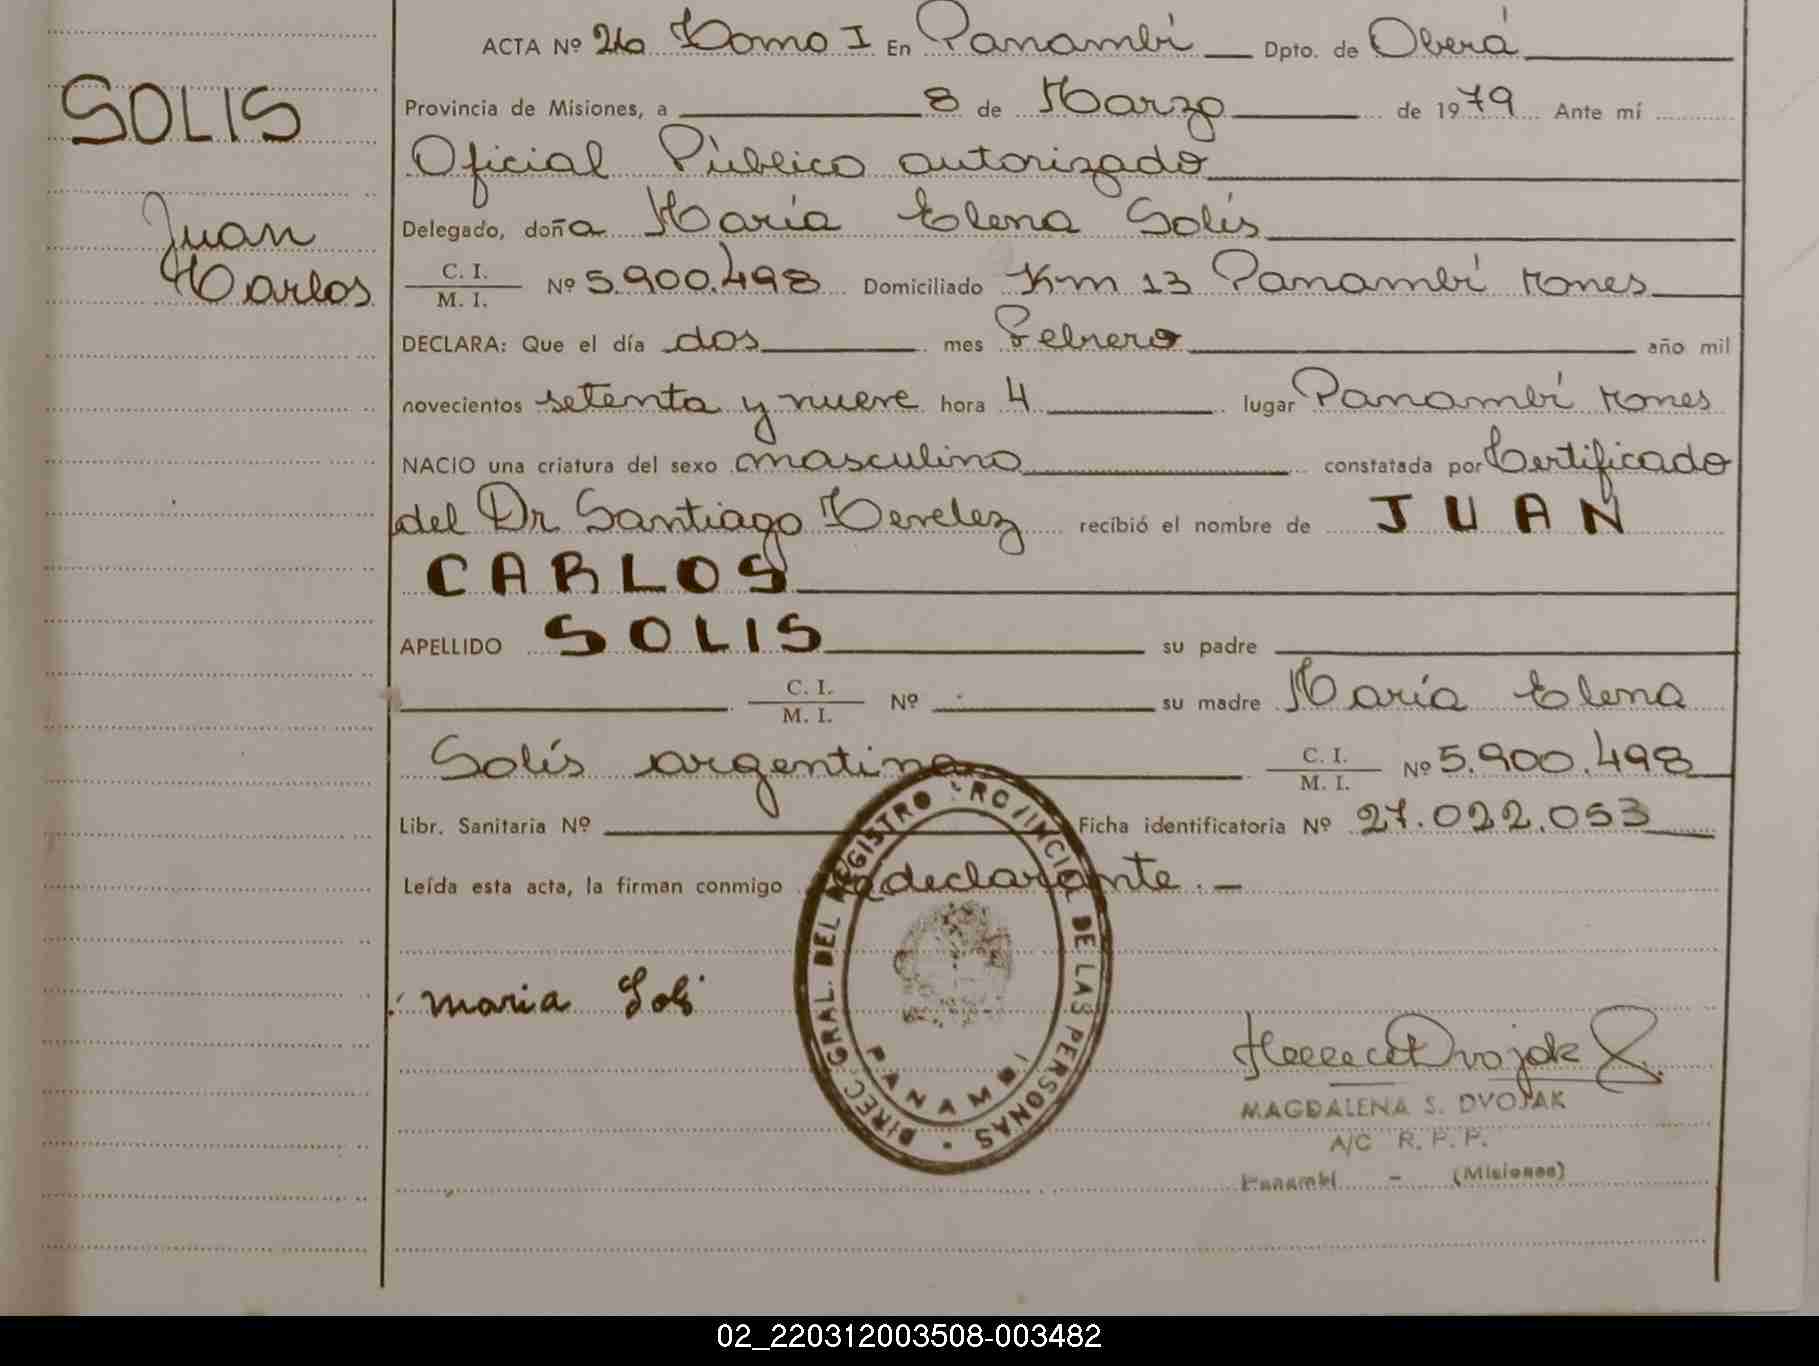 ACTA Nº 26 Tomo I En Panambí Dpto. de Oberá
SOLIS
Juan
Carlos
Provincia de Misiones, a 8 de Marzo de 1979 Ante mí
Oficial Público autorizado
Delegado, doña María Elena Solís
C. I.
M. I. Nº 5.900.498 Domiciliado Km 13 Panambí Mones
DECLARA: Que el día dos mes Febrero año mil
novecientos setenta y nueve hora 4 lugar Panambí Mones
NACIO una criatura del sexo masculino constatada por Certificado
del Dr Santiago recibió el nombre de JUAN
CARLOS
APELLIDO SOLIS su padre
C. I.
M. I. Nº su madre María Elena
Solís argentina C. I.
M. I. Nº 5.900.498
Libr. Sanitaria Nº Ficha identificatoria Nº 27.022.053
Leída esta acta, la firman conmigo la declarante.-
DIREC. GRAL. DEL REGISTRO PROVINCIAL DE LAS PERSONAS
PANAMBI
maria Solis
Dvojak
MAGDALENA S. DVOJAK
A/C R. P. P.
Panambí - (Misiones)
02_220312003508-003482